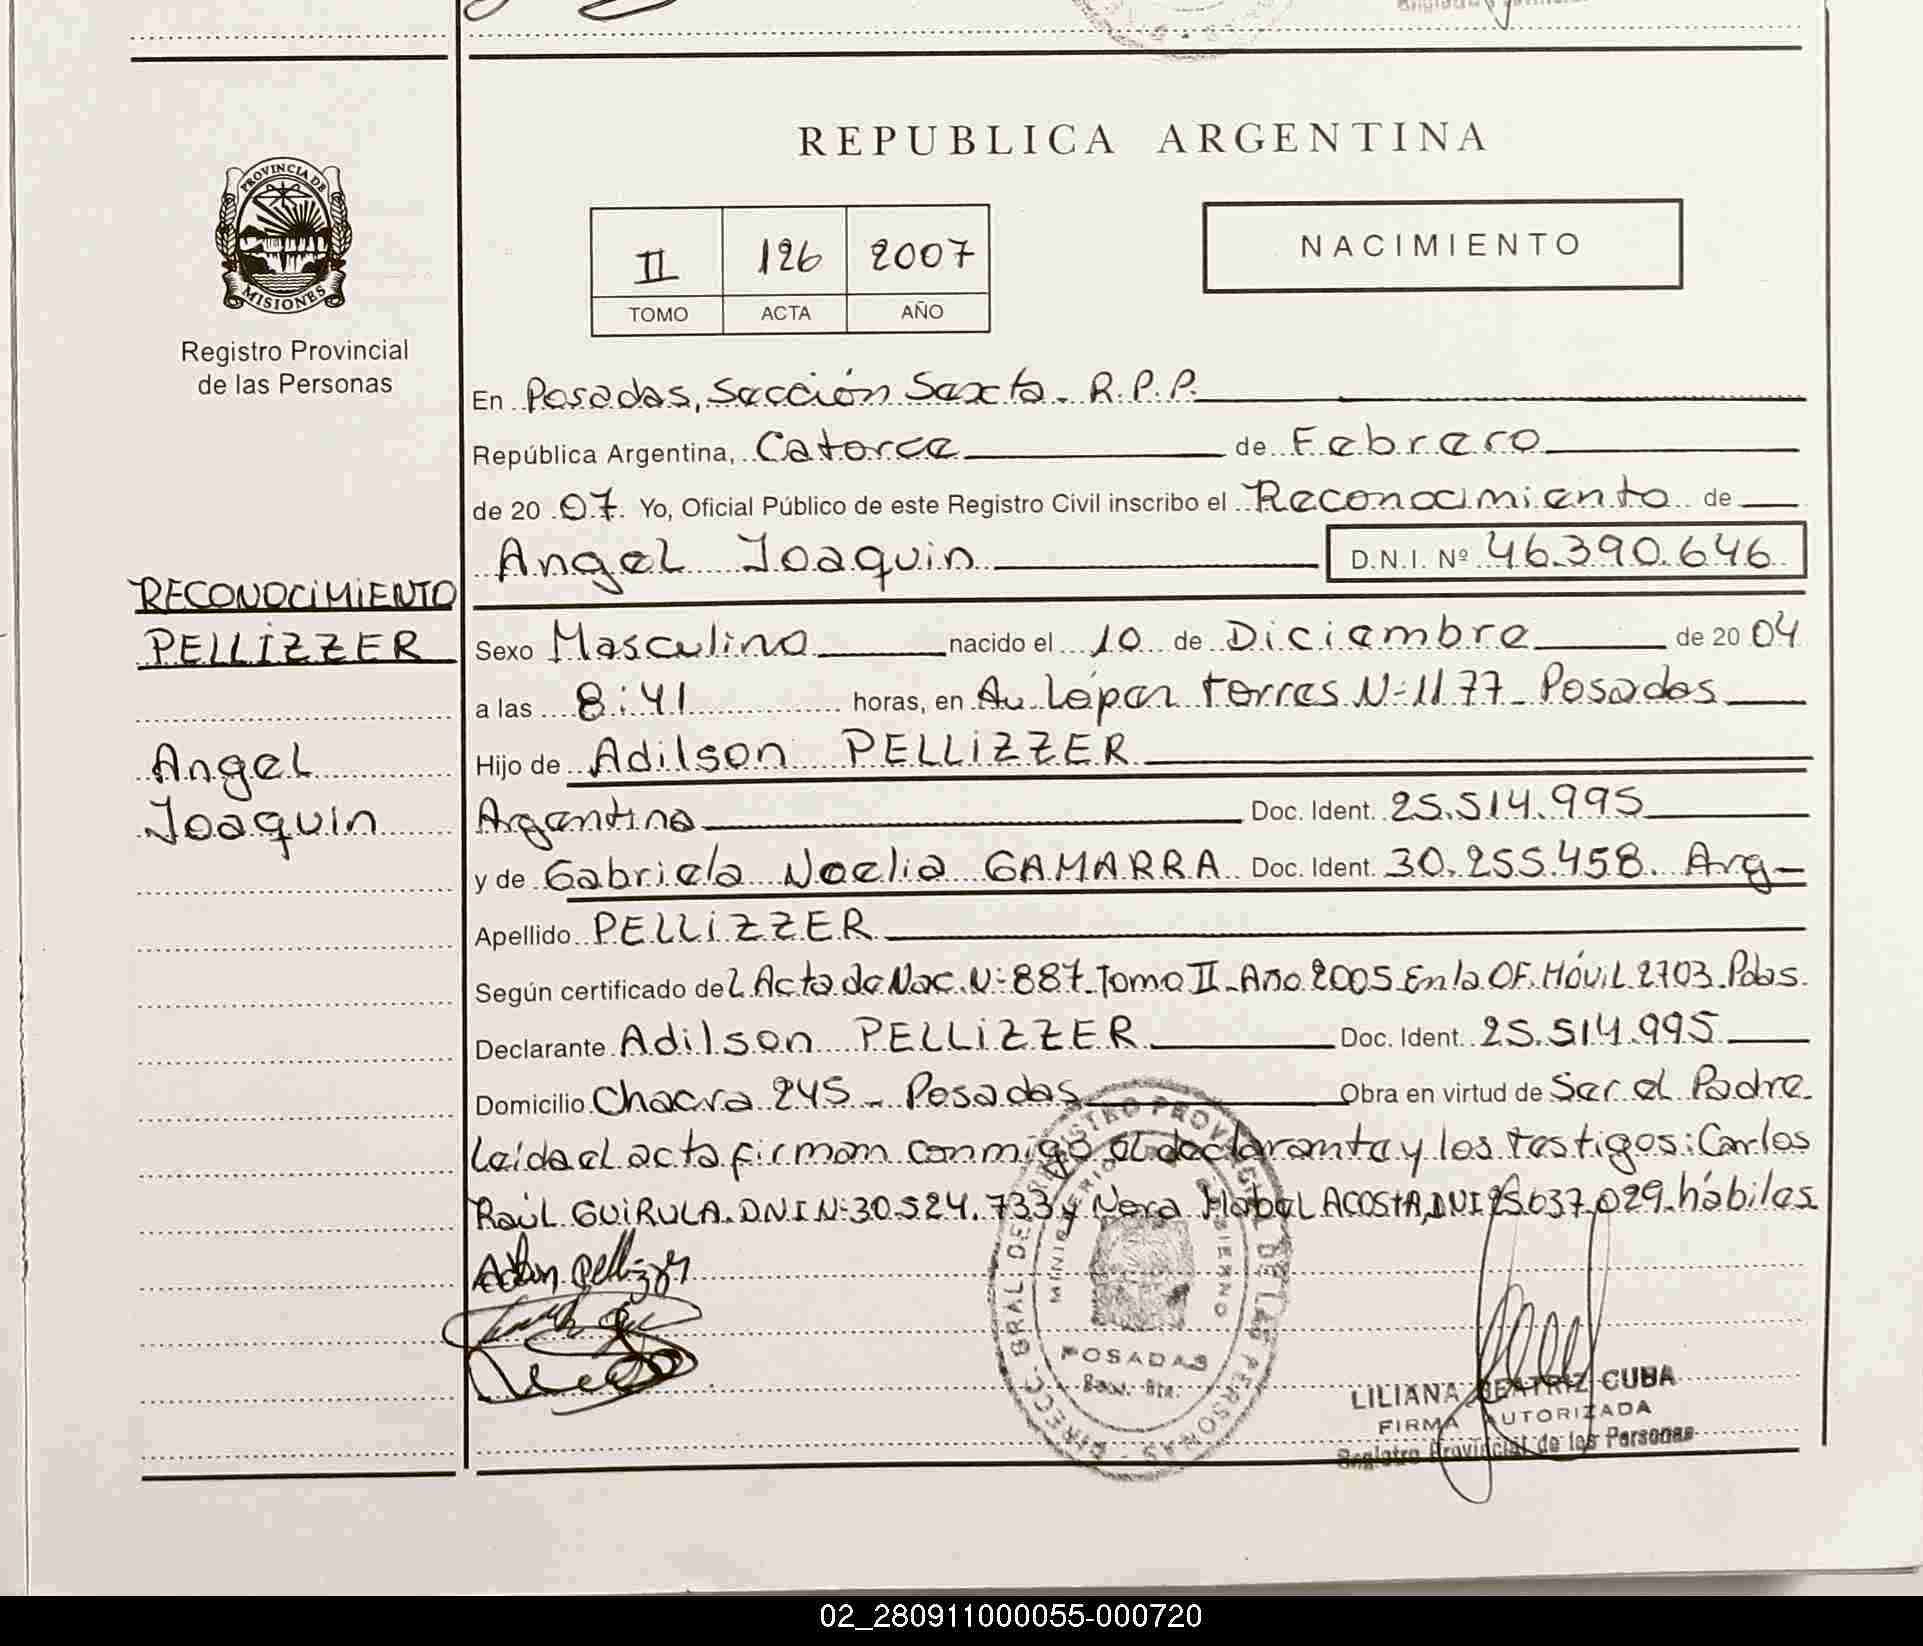 REPUBLICA ARGENTINA
PROVINCIA DE
MISIONES
Registro Provincial
de las Personas
II 126 2007
TOMO ACTA AÑO
NACIMIENTO
En Posadas, Sección Sexta. R.P.P.
República Argentina, Catorce de Febrero
de 20 07. Yo, Oficial Público de este Registro Civil inscribo el Reconocimiento de
Angel Joaquin D.N.I. Nº 46.390.646
RECONOCIMIENTO
PELLIZZER
Angel
Joaquin
Sexo Masculino nacido el 10 de Diciembre de 20 04
a las 8:41 horas, en Av. López torres N-1177 - Posadas
Hijo de Adilson PELLIZZER
Argentino Doc. Ident. 25.514.995
y de Gabriela Noelia GAMARRA Doc. Ident. 30.255.458. Arg-
Apellido PELLIZZER
Según certificado del Acta de Nac. N-887-Tomo II-Año 2005 En la OF. Móvil 2703-Pdas.
Declarante Adilson PELLIZZER Doc. Ident. 25.514.995
Domicilio Chacra 245 - Posadas Obra en virtud de Ser el Padre.
Leída el acta firman conmigo el declarante y los testigos: Carlos
Raúl GUIRULA. DNI N-30.524.733 y Nora Mabel ACOSTA, DNI 25.637.029. hábiles
Adilson Pellizzer
DIRECC. GRAL. DE REGISTRO PROVINCIAL DE LAS PERSONAS
MINISTERIO DE GOBIERNO
POSADAS
LILIANA BEATRIZ CUBA
FIRMA AUTORIZADA
Registro Provincial de las Personas
02_280911000055-000720